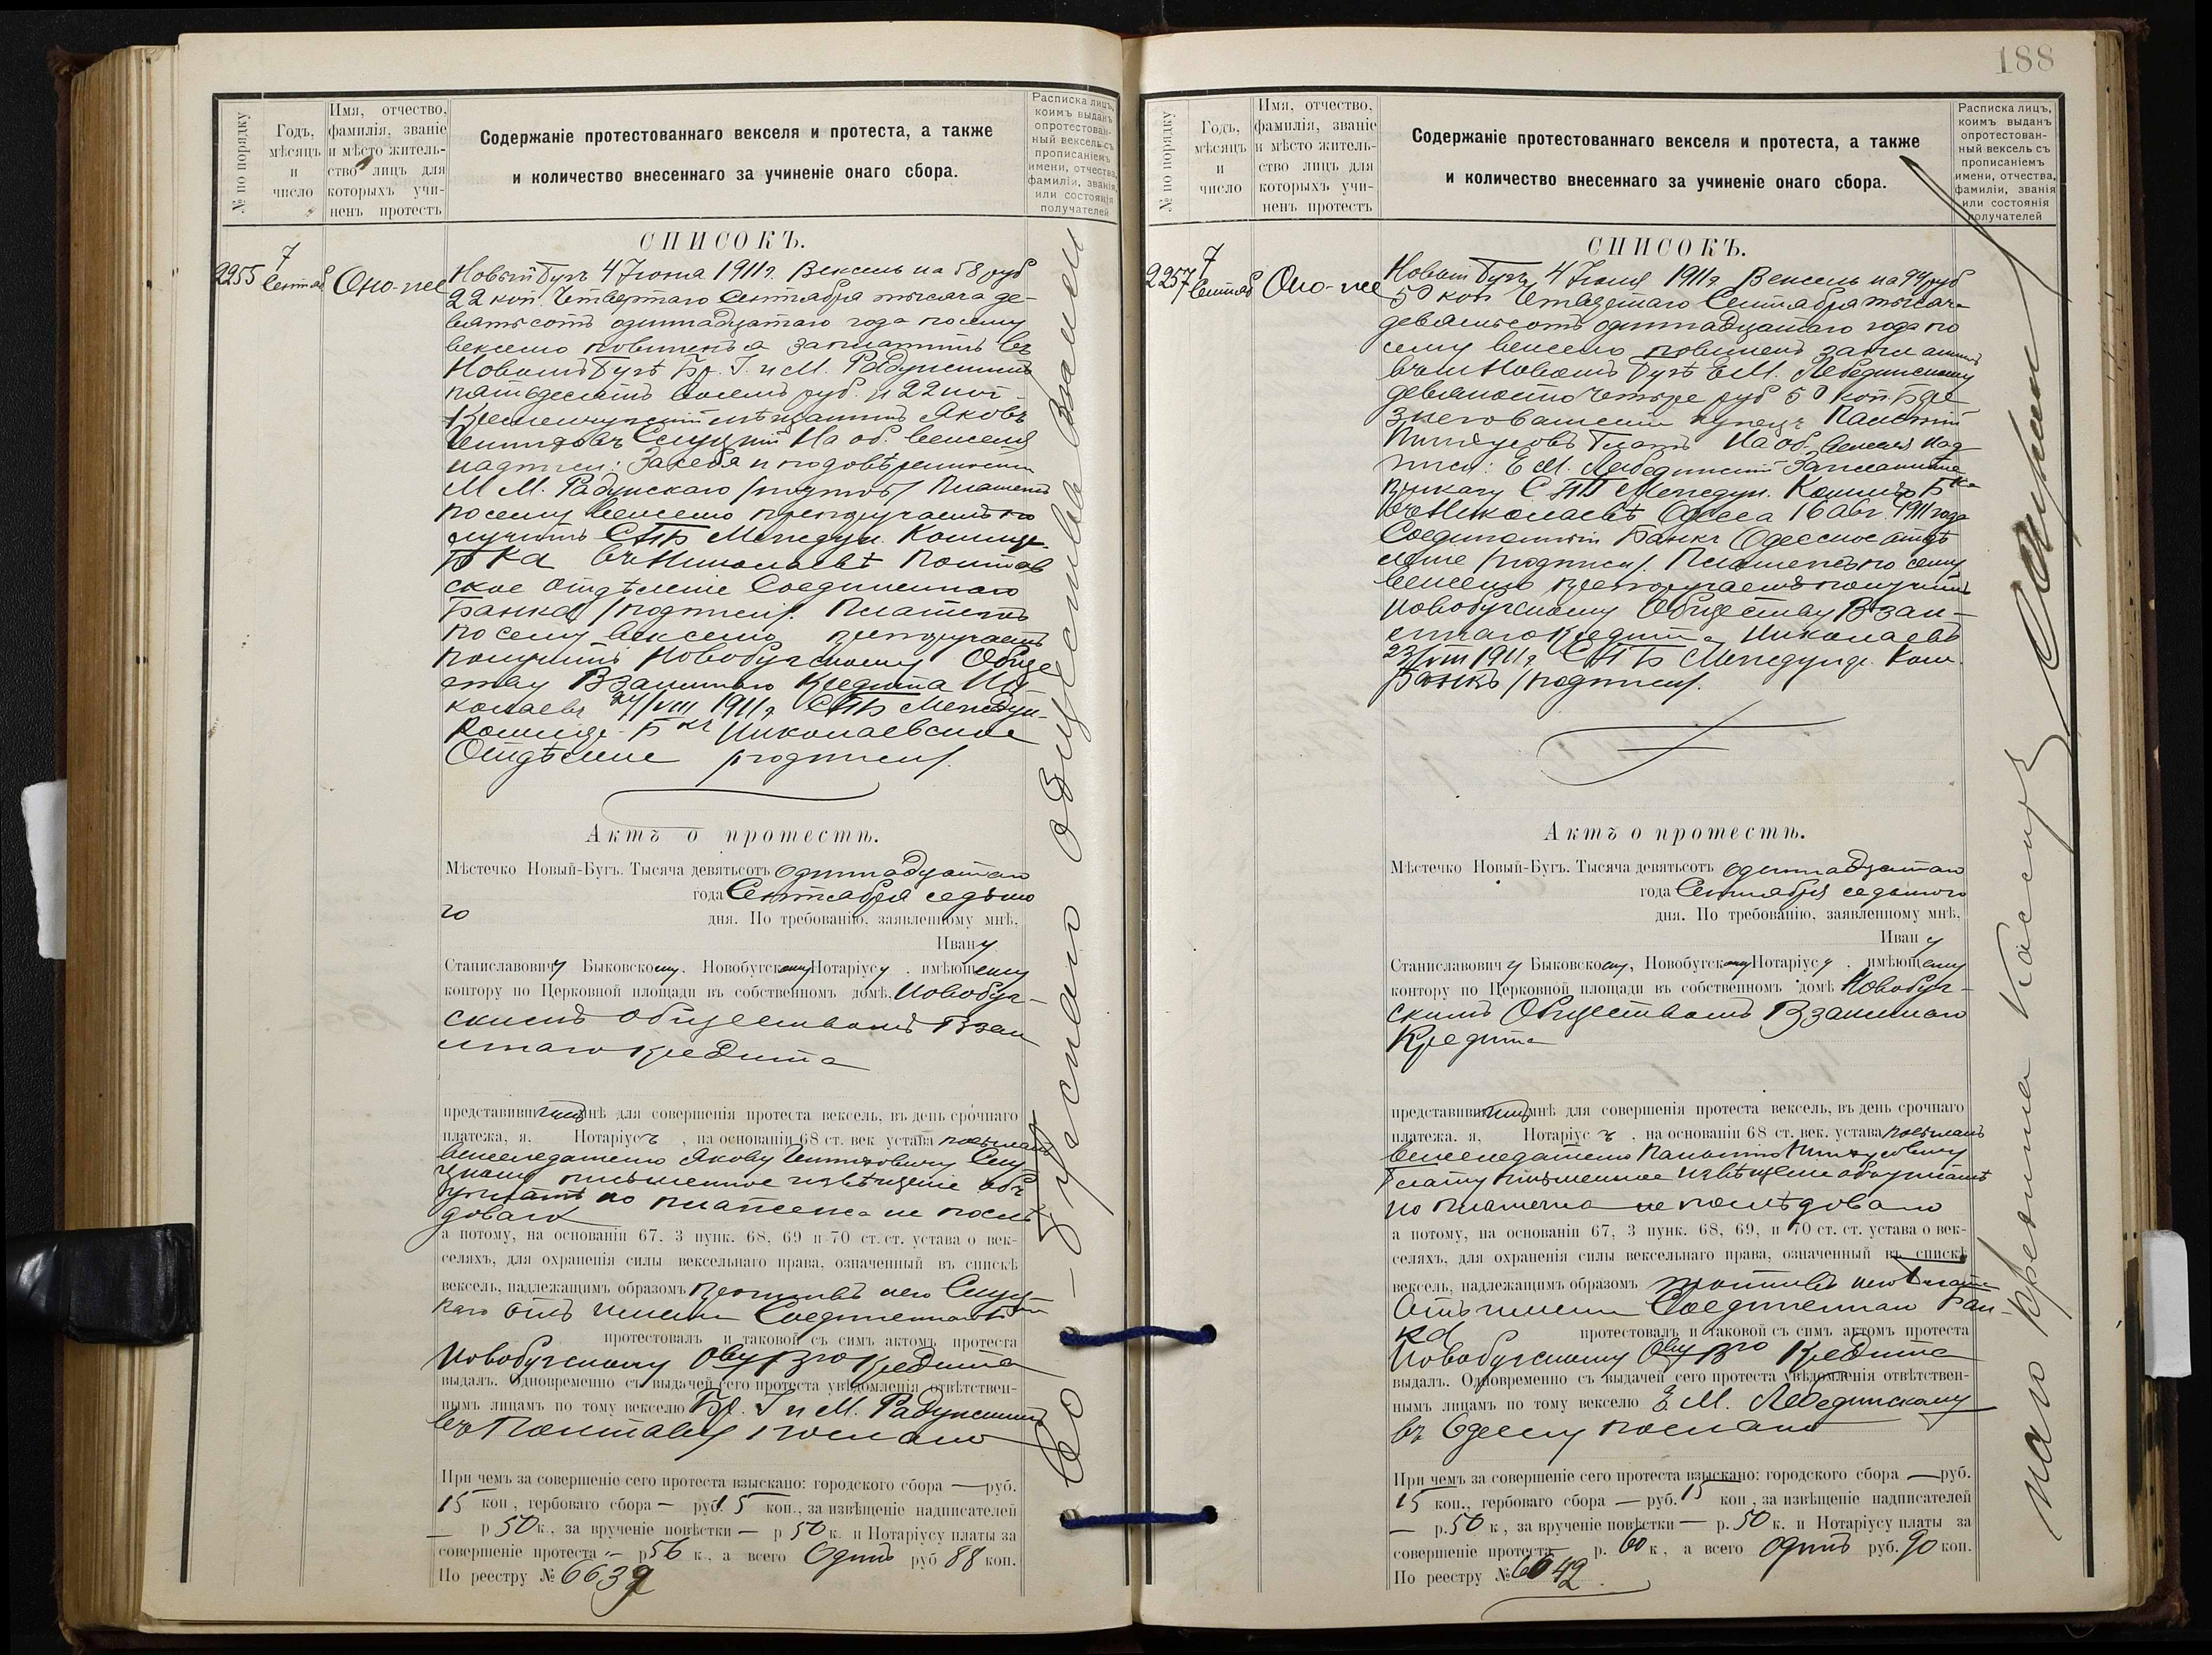 № по порядку
Годъ, мѣсяцъ и число
Имя, отчество, фамилія, званіе и мѣсто жительство лицъ для которыхъ учиненъ протестъ
Содержаніе протестованнаго векселя и протеста, а также
и количество внесеннаго за учиненіе онаго сбора.
Расписка лицъ, коимъ выданъ опротестованный вексель съ прописаніемъ имени, отчества, фамиліи, званія или состоянія получателей
СПИСОКЪ.
2255
7 Сентяб
Оно-же
Новый Бугъ 4 Іюня 1911 г. Вексель на 58 руб
22 коп. Четвертаго Сентября тысяча де-
вятьсотъ одиннадцатаго года по сему
векселю повиненъ я заплатить въ
Новомъ Бугѣ Бр. І. и М. Радунскимъ
пятьдесятъ восемь руб. и 22 коп
Кременчугскій мѣщанинъ Яковъ
Слуцкій На об. векселя
надписи: За себя и по довѣренности
М М. Радунскаго /подпись/ Платежъ
по сему векселю препоручаемъ по
лучить СПБ Междун. Коммер.
Б ка въ Николаевѣ Полтав
ское Отдѣленіе Соединеннаго
Банка /подписи/. Платежъ
по сему векселю препоручаемъ
получить Новобугскому Обще
ству Взаимнаго Кредита Ни
колаевъ 24/VIII 1911 г. СПБ Междун-
Коммер. Б къ Николаевское
Отдѣленіе /подписи/.
Актъ о протестѣ.
Мѣстечко Новый-Бугъ. Тысяча девятьсотъ одиннадцатаго
года Сентября седьмо
го дня. По требованію, заявленному мнѣ,
Ивану
Станиславовичу Быковскому, Новобугскому Нотаріусу, имѣющему
контору по Церковной площади въ собственномъ домѣ, Новобуг-
скимъ Обществомъ Взаи
мнаго Кредита
представившимъ мнѣ для совершенія протеста вексель, въ день срочнаго
платежа, я, Нотаріусъ, на основаніи 68 ст. век устава посылалъ
векселедателю Якову Слу
цкому письменное извѣщеніе объ
уплатѣ но платежа не послѣ
довало
а потому, на основаніи 67, 3 пунк. 68, 69 и 70 ст. ст. устава о век-
селяхъ, для охраненія силы вексельнаго права, означенный въ спискѣ
вексель, надлежащимъ образомъ противъ него Слуц
каго отъ имени Соединеннаго Б
протестовалъ и таковой съ симъ актомъ протеста
Новобугскому Обву Вго Кредита
выдалъ. Одновременно съ выдачей сего протеста увѣдомленія отвѣтствен-
нымъ лицамъ по тому векселю Бр. І и М. Радунскимъ
въ Полтаву послано
При чемъ за совершеніе сего протеста взыскано: городского сбора — руб.
15 коп, гербоваго сбора — руб. 15 коп., за извѣщеніе надписателей
— р 50 к., за врученіе повѣстки — р 50 к. и Нотаріусу платы за
совершеніе протеста — р 56 к., а всего Одинъ руб 88 коп.
По реестру № 6639
188
№ по порядку
Годъ, мѣсяцъ и число
Имя, отчество, фамилія, званіе и мѣсто жительство лицъ для которыхъ учиненъ протестъ
Содержаніе протестованнаго векселя и протеста, а также
и количество внесеннаго за учиненіе онаго сбора.
Расписка лицъ, коимъ выданъ опротестованный вексель съ прописаніемъ имени, отчества, фамиліи, званія или состоянія получателей
СПИСОКЪ.
2257
7 Сентяб
Оно-же
Новый Бугъ, 4 Іюня 1911 г Вексель на 94 руб
50 коп Четвертаго Сентября тысяча
девятьсотъ одиннадцатаго года по
сему векселю повиненъ заплатить
въ м Новомъ Бугѣ Е М. Лебединскому
девяносто четыре руб 50 коп
купецъ
На об. векселя над
писи: Е М. Лебединскій Заплатите
приказу С ПБ Междун. Коммер Б ка
въ Николаевѣ Одесса 16 авг. 1911 года
Соединенный Банкъ Одесское отдѣ
леніе /подписи/. Платежъ по сему
векселю препоручаемъ получить
Новобугскому Обществу Взаи-
мнаго Кредита Николаевъ
23/VIII 1911 г СПБ Междунар. Ком.
Банкъ /подписи/.
Актъ о протестѣ.
Мѣстечко Новый-Бугъ. Тысяча девятьсотъ одиннадцатаго
года Сентября седьмого
дня. По требованію, заявленному мнѣ,
Ивану
Станиславовичу Быковскому, Новобугскому Нотаріусу, имѣющему
контору по Церковной площади въ собственномъ домѣ Новобуг-
скимъ Обществомъ Взаимнаго
Кредита
представившимъ мнѣ для совершенія протеста вексель, въ день срочнаго
платежа, я, Нотаріусъ, на основаніи 68 ст. век. устава посылалъ
векселедателю
письменное извѣщеніе объ уплатѣ
но платежа не послѣдовало
а потому, на основаніи 67, 3 пунк. 68, 69, и 70 ст. ст. устава о век-
селяхъ, для охраненія силы вексельнаго права, означенный въ спискѣ
вексель, надлежащимъ образомъ противъ него
отъ имени Соединеннаго Бан-
ка протестовалъ и таковой съ симъ актомъ протеста
Новобугскому Обву Вго Кредита
выдалъ. Одновременно съ выдачей сего протеста увѣдомленія отвѣтствен-
нымъ лицамъ по тому векселю Е М. Лебединскому
въ Одессу послано
При чемъ за совершеніе сего протеста взыскано: городского сбора — руб.
15 коп., гербоваго сбора — руб. 15 коп, за извѣщеніе надписателей
— р. 50 к, за врученіе повѣстки — р. 50 к. и Нотаріусу платы за
совершеніе протеста р. 60 к, а всего Одинъ руб. 90 коп.
По реестру № 6642
Ново-Бугскаго Общества Взаим
наго Кредита Кассиръ